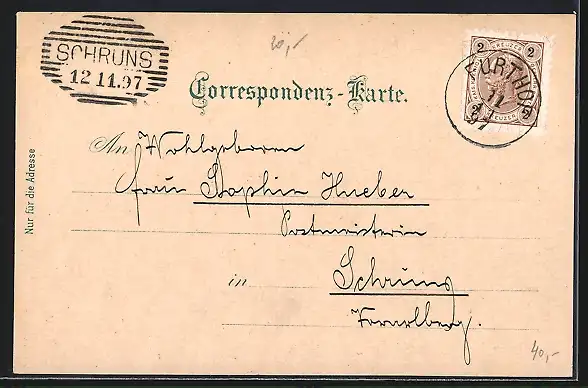 20,-
SCHRUNS
12.11.97
2 KREUZER 2
FURTHOF
11
11
97
2 KREUZER 2
Correspondenz-Karte.
Nur für die Adresse
An Wohlgeboren
Frau Sophie Hueber
Postmeisterin
in Schruns
Vorarlberg.
40,-